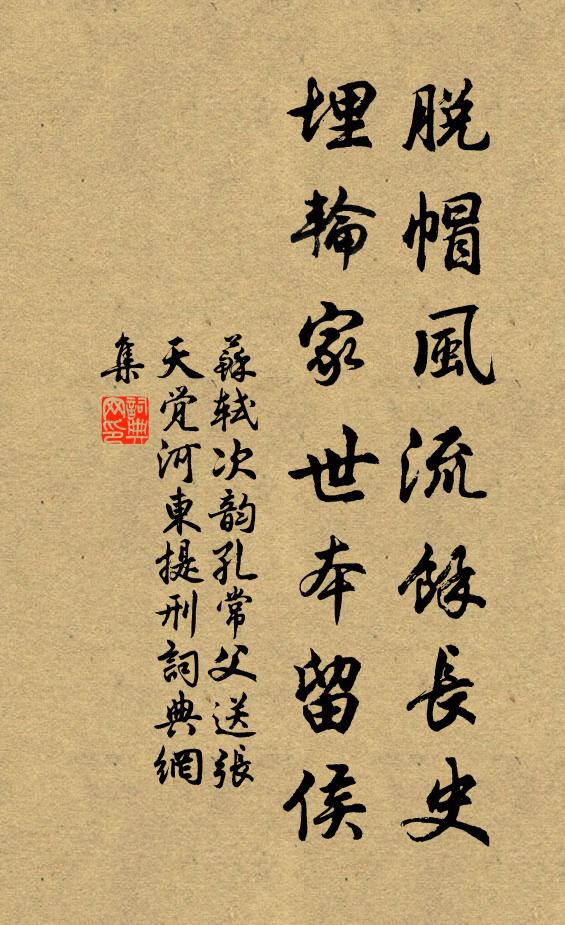 脱帽風流餘長史
埋輪家世本留侯
蘇軾次韵孔常父送張
天觉河東提刑詞典網
集
詞典
网印